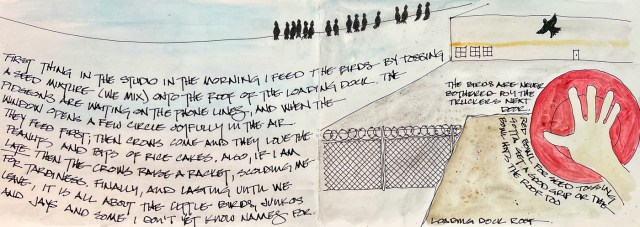 FIRST THING IN THE STUDIO IN THE MORNING I FEED THE BIRDS - BY TOSSING
A SEED MIXTURE (WE MIX) ONTO THE ROOF OF THE LOADING DOCK. THE
PIDGEONS ARE WAITING ON THE PHONE LINES, AND WHEN THE
WINDOW OPENS A FEW CIRCLE JOYFULLY IN THE AIR.
THEY FEED FIRST, THEN CROWS COME AND THEY LOVE THE
PEANUTS AND BITS OF RICE CAKES. ALSO, IF I AM
LATE THEN THE CROWS RAISE A RACKET, SCOLDING ME
FOR TARDINESS. FINALLY, AND LASTING UNTIL WE
LEAVE, IT IS ALL ABOUT THE LITTLE BIRDS, JUNKOS
AND JAYS AND SOME I DON'T YET KNOW NAMES FOR.
THE BIRDS ARE NEVER
BOTHERED BY THE
TRUCKERS NEXT
DOOR.
RED BOWL FOR SEED TOSSING
GOTTA GET A GOOD GRIP OR THE
BOWL HITS THE ROOF TOO
LOADING DOCK ROOF